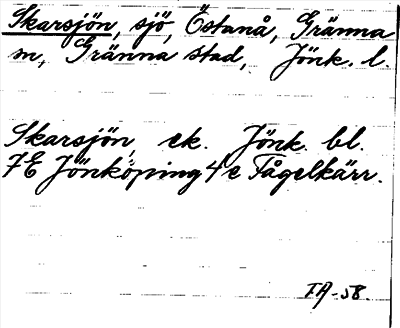 Skarsjön, sjö, Östanå, Gränna
m, Gränna stad, Jönk. l.
Skarsjön, ek. Jönk. bl.
7E Jönköping 4e Fågelkärr.
FA-58.